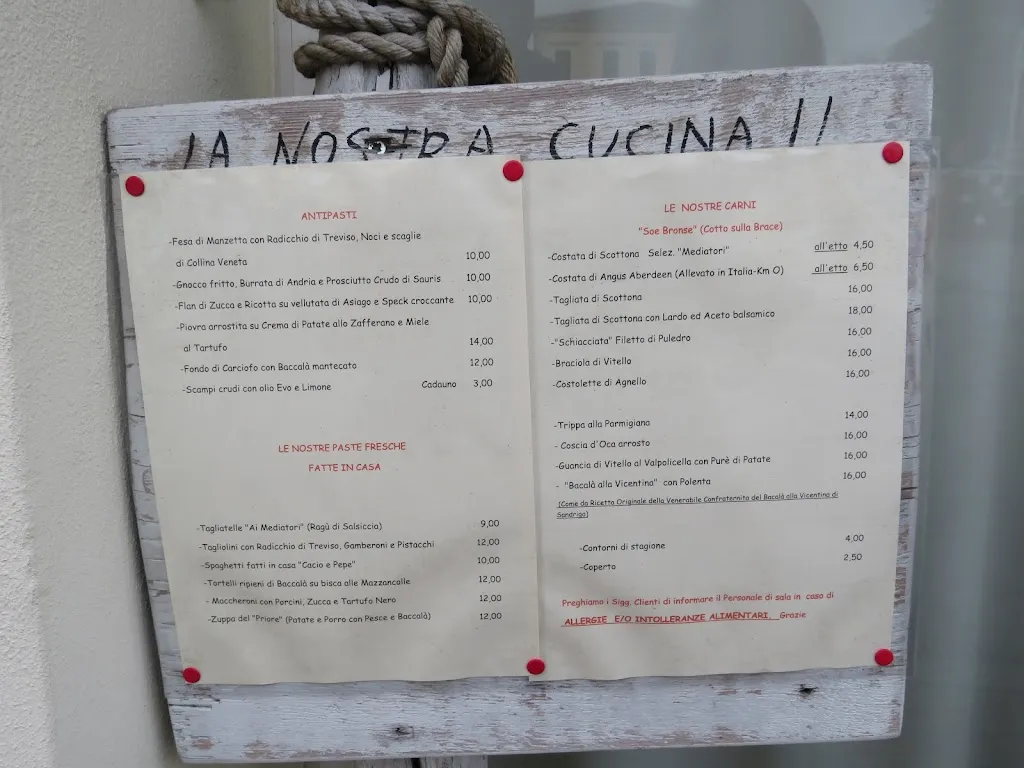 LA NOSTRA CUCINA !!
ANTIPASTI
-Fesa di Manzetta con Radicchio di Treviso, Noci e scaglie
di Collina Veneta 10,00
-Gnocco fritto, Burrata di Andria e Prosciutto Crudo di Sauris 10,00
-Flan di Zucca e Ricotta su vellutata di Asiago e Speck croccante 10,00
-Piovra arrostita su Crema di Patate allo Zafferano e Miele
al Tartufo 14,00
-Fondo di Carciofo con Baccalà mantecato 12,00
-Scampi crudi con olio Evo e Limone Cadauno 3,00
LE NOSTRE PASTE FRESCHE
FATTE IN CASA
-Tagliatelle "Ai Mediatori" (Ragù di Salsiccia) 9,00
-Tagliolini con Radicchio di Treviso, Gamberoni e Pistacchi 12,00
-Spaghetti fatti in casa "Cacio e Pepe" 10,00
-Tortelli ripieni di Baccalà su bisca alle Mazzancolle 12,00
- Maccheroni con Porcini, Zucca e Tartufo Nero 12,00
-Zuppa del "Priore" (Patate e Porro con Pesce e Baccalà) 12,00
LE NOSTRE CARNI
"Soe Bronse" (Cotto sulla Brace)
-Costata di Scottona Selez. "Mediatori" all'etto 4,50
-Costata di Angus Aberdeen (Allevato in Italia-Km O) all'etto 6,50
-Tagliata di Scottona 16,00
-Tagliata di Scottona con Lardo ed Aceto balsamico 18,00
-"Schiacciata" Filetto di Puledro 16,00
-Braciola di Vitello 16,00
-Costolette di Agnello 16,00
-Trippa alla Parmigiana 14,00
- Coscia d'Oca arrosto 16,00
-Guancia di Vitello al Valpolicella con Purè di Patate 16,00
- "Bacalà alla Vicentina" con Polenta 16,00
(Come da Ricetta Originale della Venerabile Confraternita del Bacalà alla Vicentina di
Sandrigo)
-Contorni di stagione 4,00
-Coperto 2,50
Preghiamo i Sigg. Clienti di informare il Personale di sala in caso di
ALLERGIE E/O INTOLLERANZE ALIMENTARI. Grazie